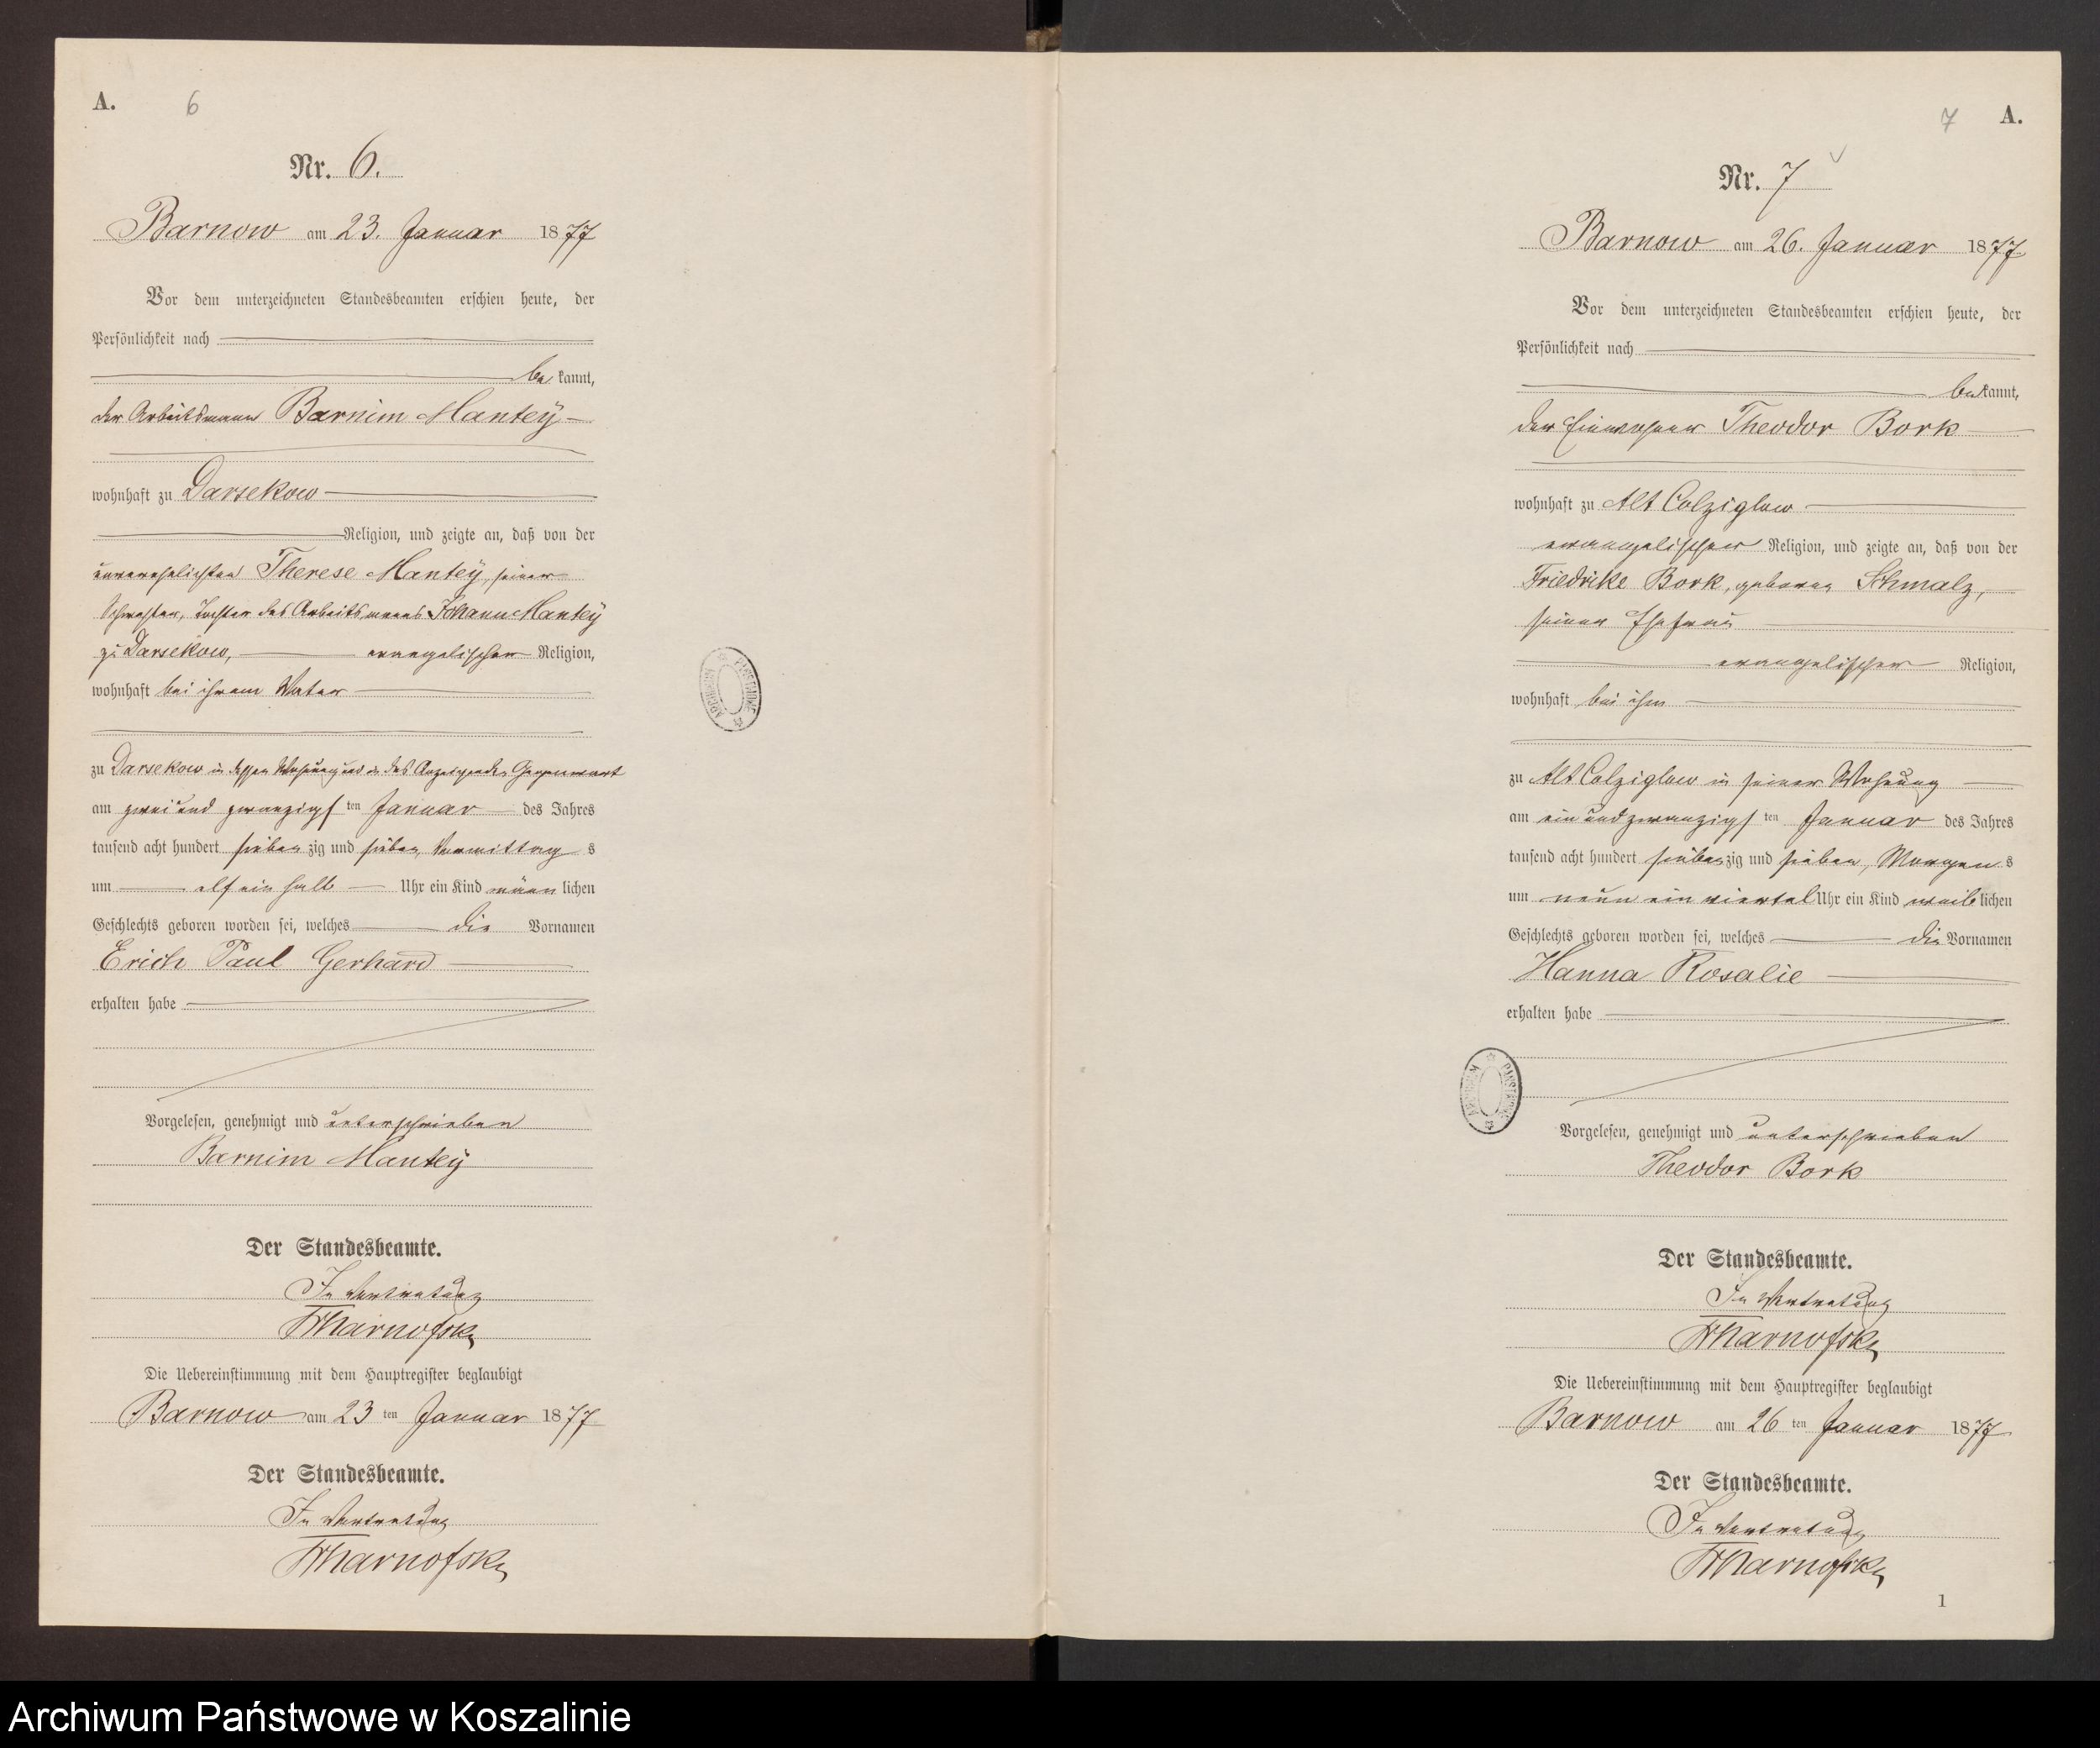 A.
6
Nr. 6.
Barnow am 23. Januar 1877
Vor dem unterzeichneten Standesbeamten erschien heute, der
Persönlichkeit nach
be kannt,
der Arbeitsmann Barnim Mantey
wohnhaft zu Darsekow
Religion, und zeigte an, daß von der
unverehelichten Therese Mantey, seiner
Schwester, Tochter des Arbeitsmanns Johann Mantey
zu Darsekow, evangelischer Religion,
wohnhaft bei ihrem Vater
zu Darsekow in dessen Wohnung und in des Anzeigenden Gegenwart
am zwei und zwanzigs ten Januar des Jahres
tausend acht hundert sieben zig und sieben, Vormittag s
um elf ein halb Uhr ein Kind männ lichen
Geschlechts geboren worden sei, welches die Vornamen
Erich Paul Gerhard
erhalten habe
Vorgelesen, genehmigt und unterschrieben
Barnim Mantey
Der Standesbeamte.
In Vertretung
Die Uebereinstimmung mit dem Hauptregister beglaubigt
Barnow am 23 ten Januar 1877
Der Standesbeamte.
In Vertretung
7
A.
Nr. 7
Barnow am 26. Januar 1877.
Vor dem unterzeichneten Standesbeamten erschien heute, der
Persönlichkeit nach
be kannt,
der Einwohner Theodor Bork
wohnhaft zu Alt Colziglow
evangelischer Religion, und zeigte an, daß von der
Friedrike Bork, geborne Schmalz,
seiner Ehefrau
evangelischer Religion,
wohnhaft bei ihm
zu Alt Colziglow in seiner Wohnung
am ein und zwanzigs ten Januar des Jahres
tausend acht hundert sieben zig und sieben, Morgen s
um neun ein viertel Uhr ein Kind weib lichen
Geschlechts geboren worden sei, welches die Vornamen
Hanna Rosalie
erhalten habe
Vorgelesen, genehmigt und unterschrieben
Theodor Bork
Der Standesbeamte.
In Vertretung
Die Uebereinstimmung mit dem Hauptregister beglaubigt
Barnow am 26 ten Januar 1877
Der Standesbeamte.
In Vertretung
1
Archiwum Państwowe w Koszalinie